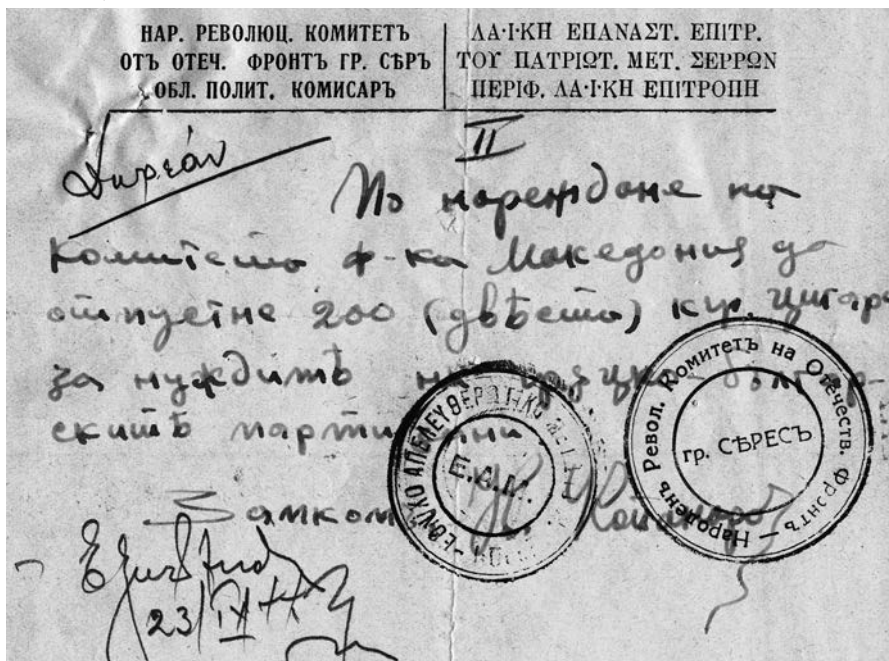 НАР. РЕВОЛЮЦ. КОМИТЕТЪ
ОТЪ ОТЕЧ. ФРОНТЪ ГР. СѢРЪ
ОБЛ. ПОЛИТ. КОМИСАРЪ
ΛΑ·Ι·ΚΗ ΕΠΑΝΑΣΤ. ΕΠΙΤΡ.
ΤΟΥ ΠΑΤΡΙΩΤ. ΜΕΤ. ΣΕΡΡΩΝ
ΠΕΡΙΦ. ΛΑ·Ι·ΚΗ ΕΠΙΤΡΟΠΗ
II
Δωρεάν
По нареждане на
Комитета ф-ка Македония да
отпустне 200 (двѣста) кгр. цигари
за нуждитѣ на гръцко-българ-
скитѣ партизани
Замком
23/IX 44
ΕΘΝΙΚΟ ΑΠΕΛΕΥΘΕΡΩΤΙΚΟ
Ε.Α.Μ.
Народенъ Револ. Комитетъ на Отечеств. Фронтъ
гр. СѢРЕСЪ